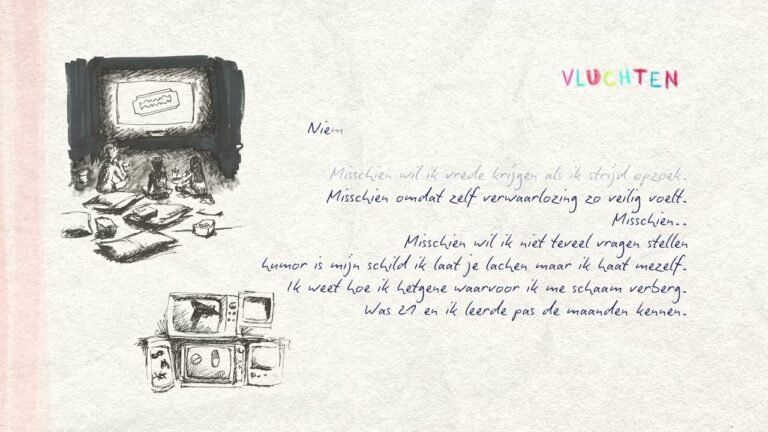 VLUCHTEN
Niem
Misschien wil ik vrede krijgen als ik strijd opzoek.
Misschien omdat zelf verwaarlozing zo veilig voelt.
Misschien..
Misschien wil ik niet teveel vragen stellen
humor is mijn schild ik laat je lachen maar ik haat mezelf.
Ik weet hoe ik hetgene waarvoor ik me schaam verberg.
Was 21 en ik leerde pas de maanden kennen.